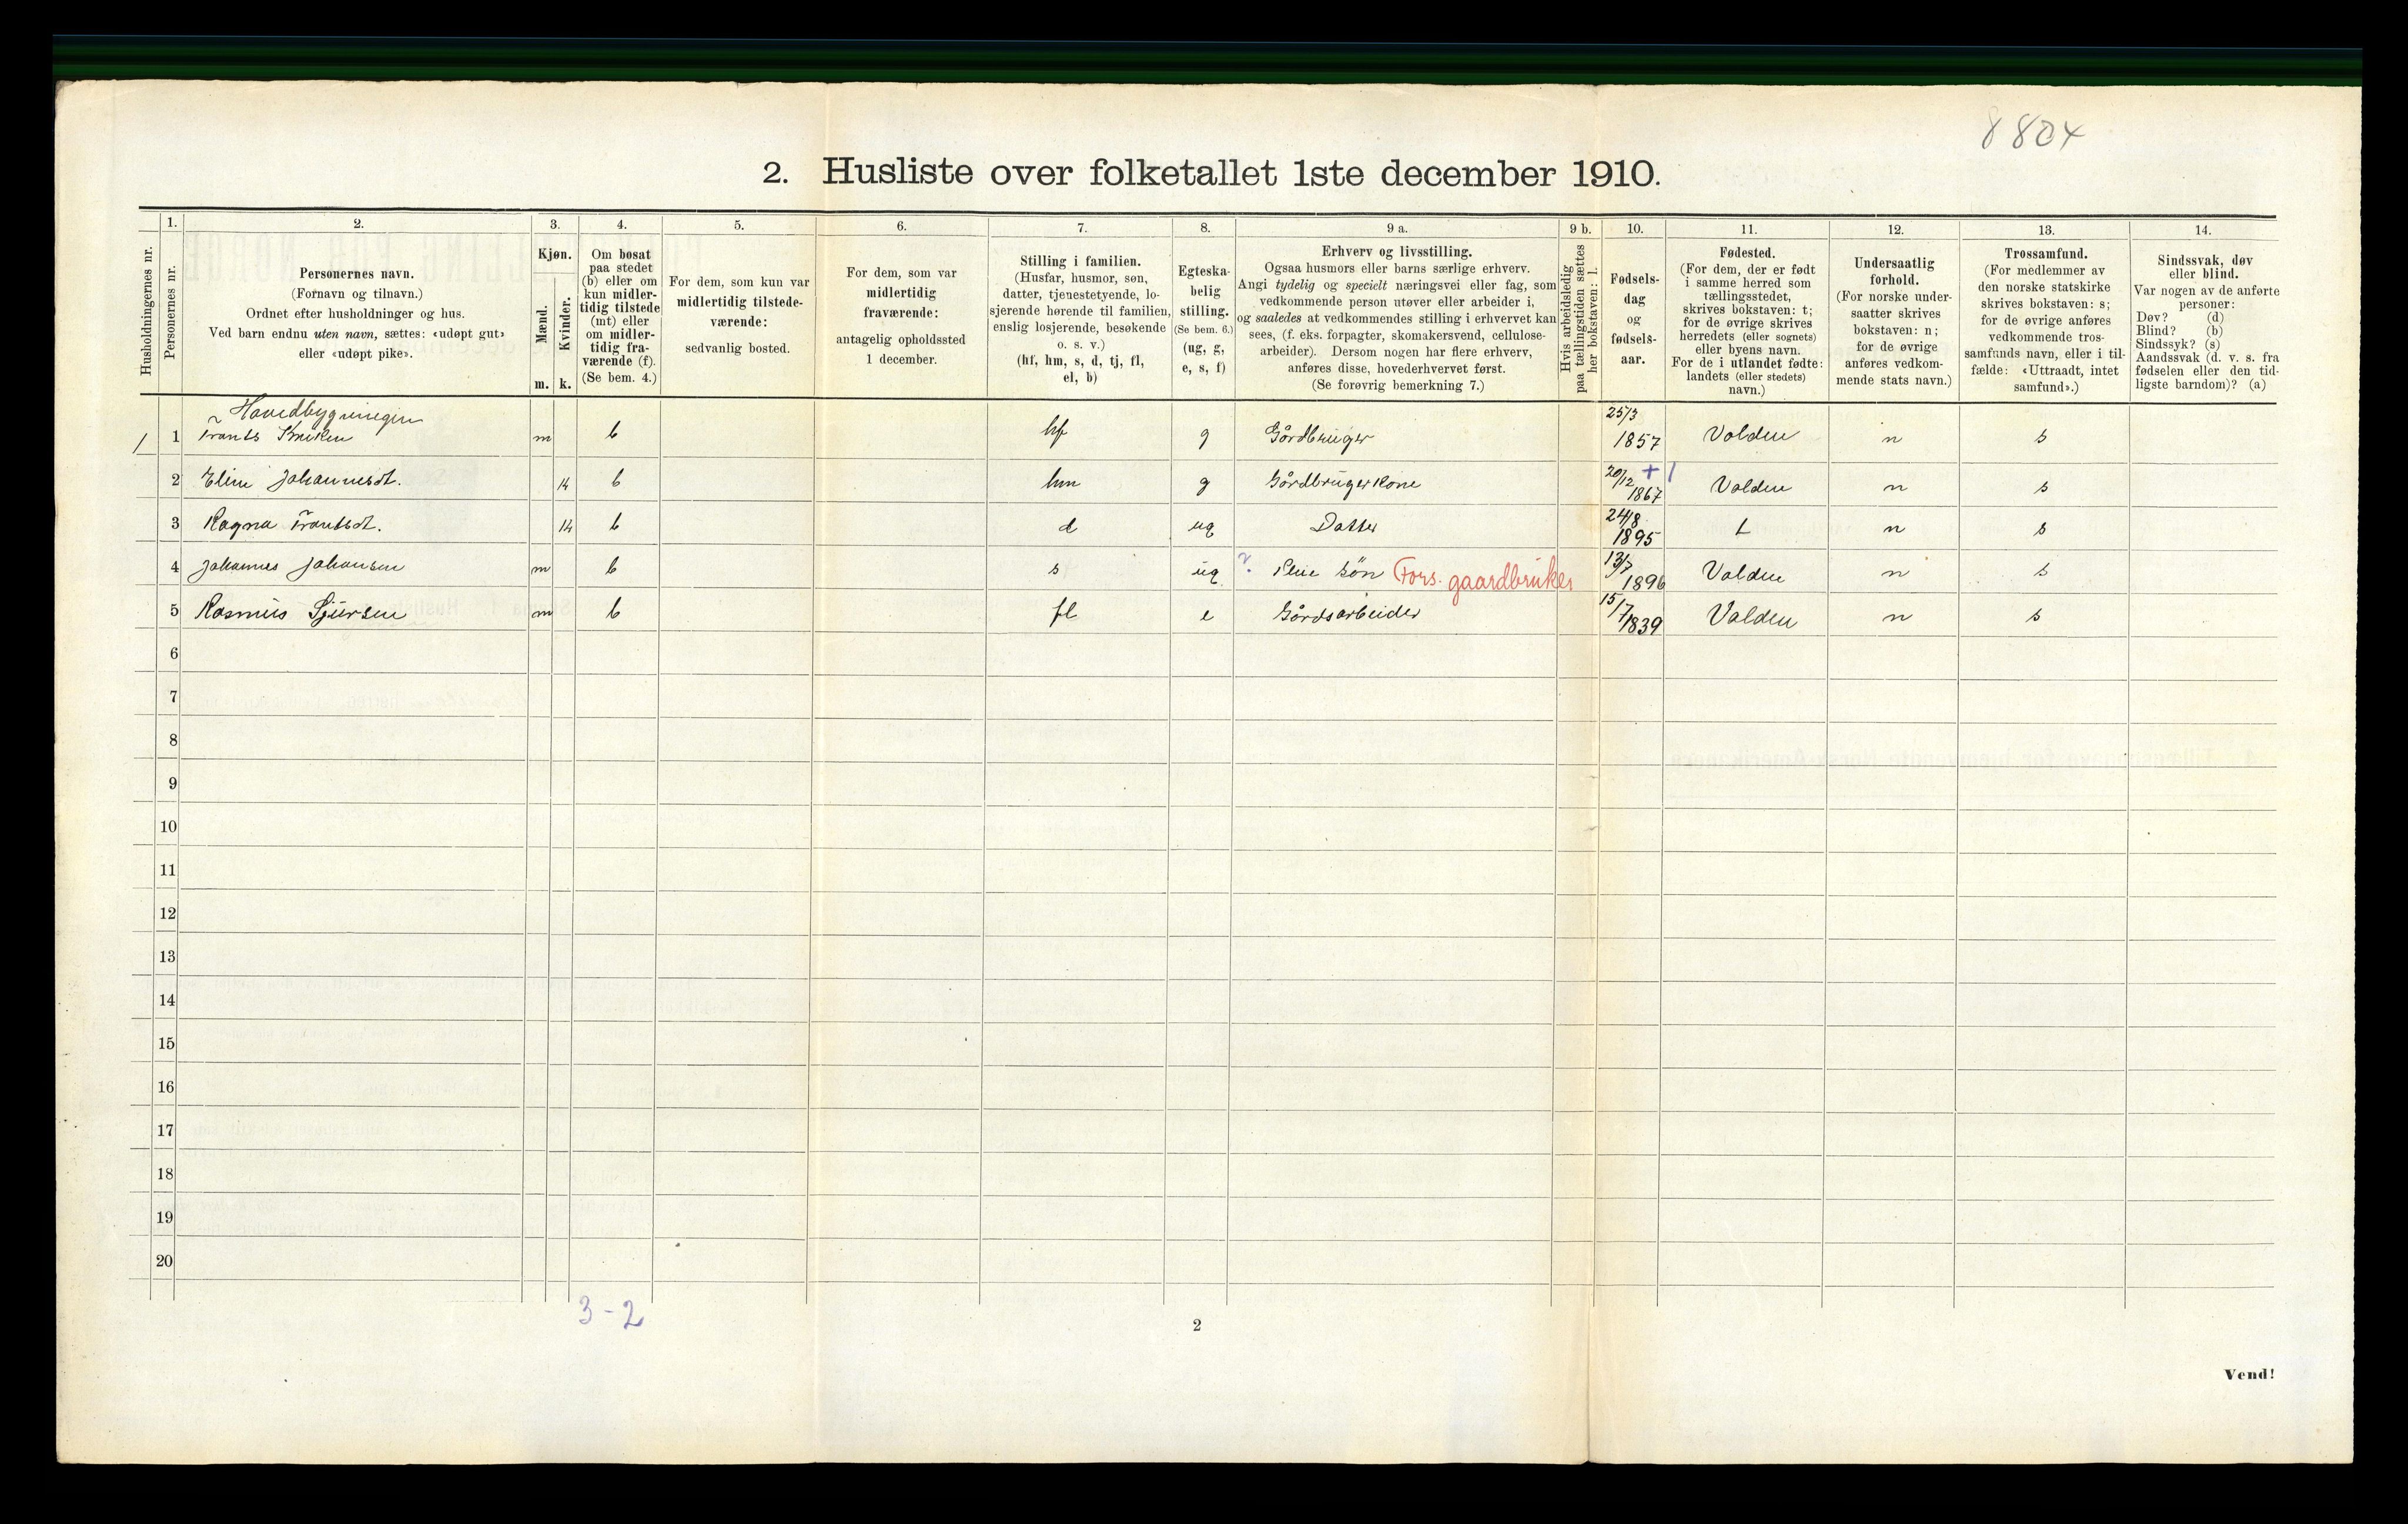 8804
2. Husliste over folketallet 1ste december 1910.
Husholdningernes nr.
1.
Personernes nr.
2.
Personernes navn.
(Fornavn og tilnavn.)
Ordnet efter husholdninger og hus.
Ved barn endnu uten navn, sættes: «udøpt gut»
eller «udøpt pike».
3.
Kjøn.
Mænd.
Kvinder.
m. k.
4.
Om bosat
paa stedet
(b) eller om
kun midler-
tidig tilstede
(mt) eller
om midler-
tidig fra-
værende (f).
(Se bem. 4.)
5.
For dem, som kun var
midlertidig tilstede-
værende:
sedvanlig bosted.
6.
For dem, som var
midlertidig
fraværende:
antagelig opholdssted
1 december.
7.
Stilling i familien.
(Husfar, husmor, søn,
datter, tjenestetyende, lo-
sjerende hørende til familien,
enslig losjerende, besøkende
o. s. v.)
(hf, hm, s, d, tj, fl,
el, b)
8.
Egteska-
belig
stilling.
(Se bem. 6.)
(ug, g,
e, s, f)
9 a.
Erhverv og livsstilling.
Ogsaa husmors eller barns særlige erhverv.
Angi tydelig og specielt næringsvei eller fag, som
vedkommende person utøver eller arbeider i,
og saaledes at vedkommendes stilling i erhvervet kan
sees, (f. eks. forpagter, skomakersvend, cellulose-
arbeider). Dersom nogen har flere erhverv,
anføres disse, hovederhvervet først.
(Se forøvrig bemerkning 7.)
9 b.
Hvis arbeidsledig
paa tællingstiden sættes
her bokstaven: l.
10.
Fødsels-
dag
og
fødsels-
aar.
11.
Fødested.
(For dem, der er født
i samme herred som
tællingsstedet,
skrives bokstaven: t;
for de øvrige skrives
herredets (eller sognets)
eller byens navn.
For de i utlandet fødte:
landets (eller stedets)
navn.)
12.
Undersaatlig
forhold.
(For norske under-
saatter skrives
bokstaven: n;
for de øvrige
anføres vedkom-
mende stats navn.)
13.
Trossamfund.
(For medlemmer av
den norske statskirke
skrives bokstaven: s;
for de øvrige anføres
vedkommende tros-
samfunds navn, eller i til-
fælde: «Uttraadt, intet
samfund».)
14.
Sindssvak, døv
eller blind.
Var nogen av de anførte
personer:
Døv? (d)
Blind? (b)
Sindssyk? (s)
Aandssvak (d. v. s. fra
fødselen eller den tid-
ligste barndom)? (a)
Hovedbygningen
1 1 Frants m b hf g Gårdbruger 25/3 1857 Volden n s
2 Eline Johannesdt. k b hm g Gårdbrugerkone 20/12 1867 + 1 Volden n s
3 Ragna Frantsdt. k b d ug Datter 24/8 1895 t n s
4 Johannes Johansen m b s ug ? Pleie søn Fors. gaardbruker 13/7 1896 Volden n s
5 Rasmus Sjursen m b fl e Gårdsarbeider 15/7 1839 Volden n s
6
7
8
9
10
11
12
13
14
15
16
17
18
19
20
3 - 2
2
Vend!